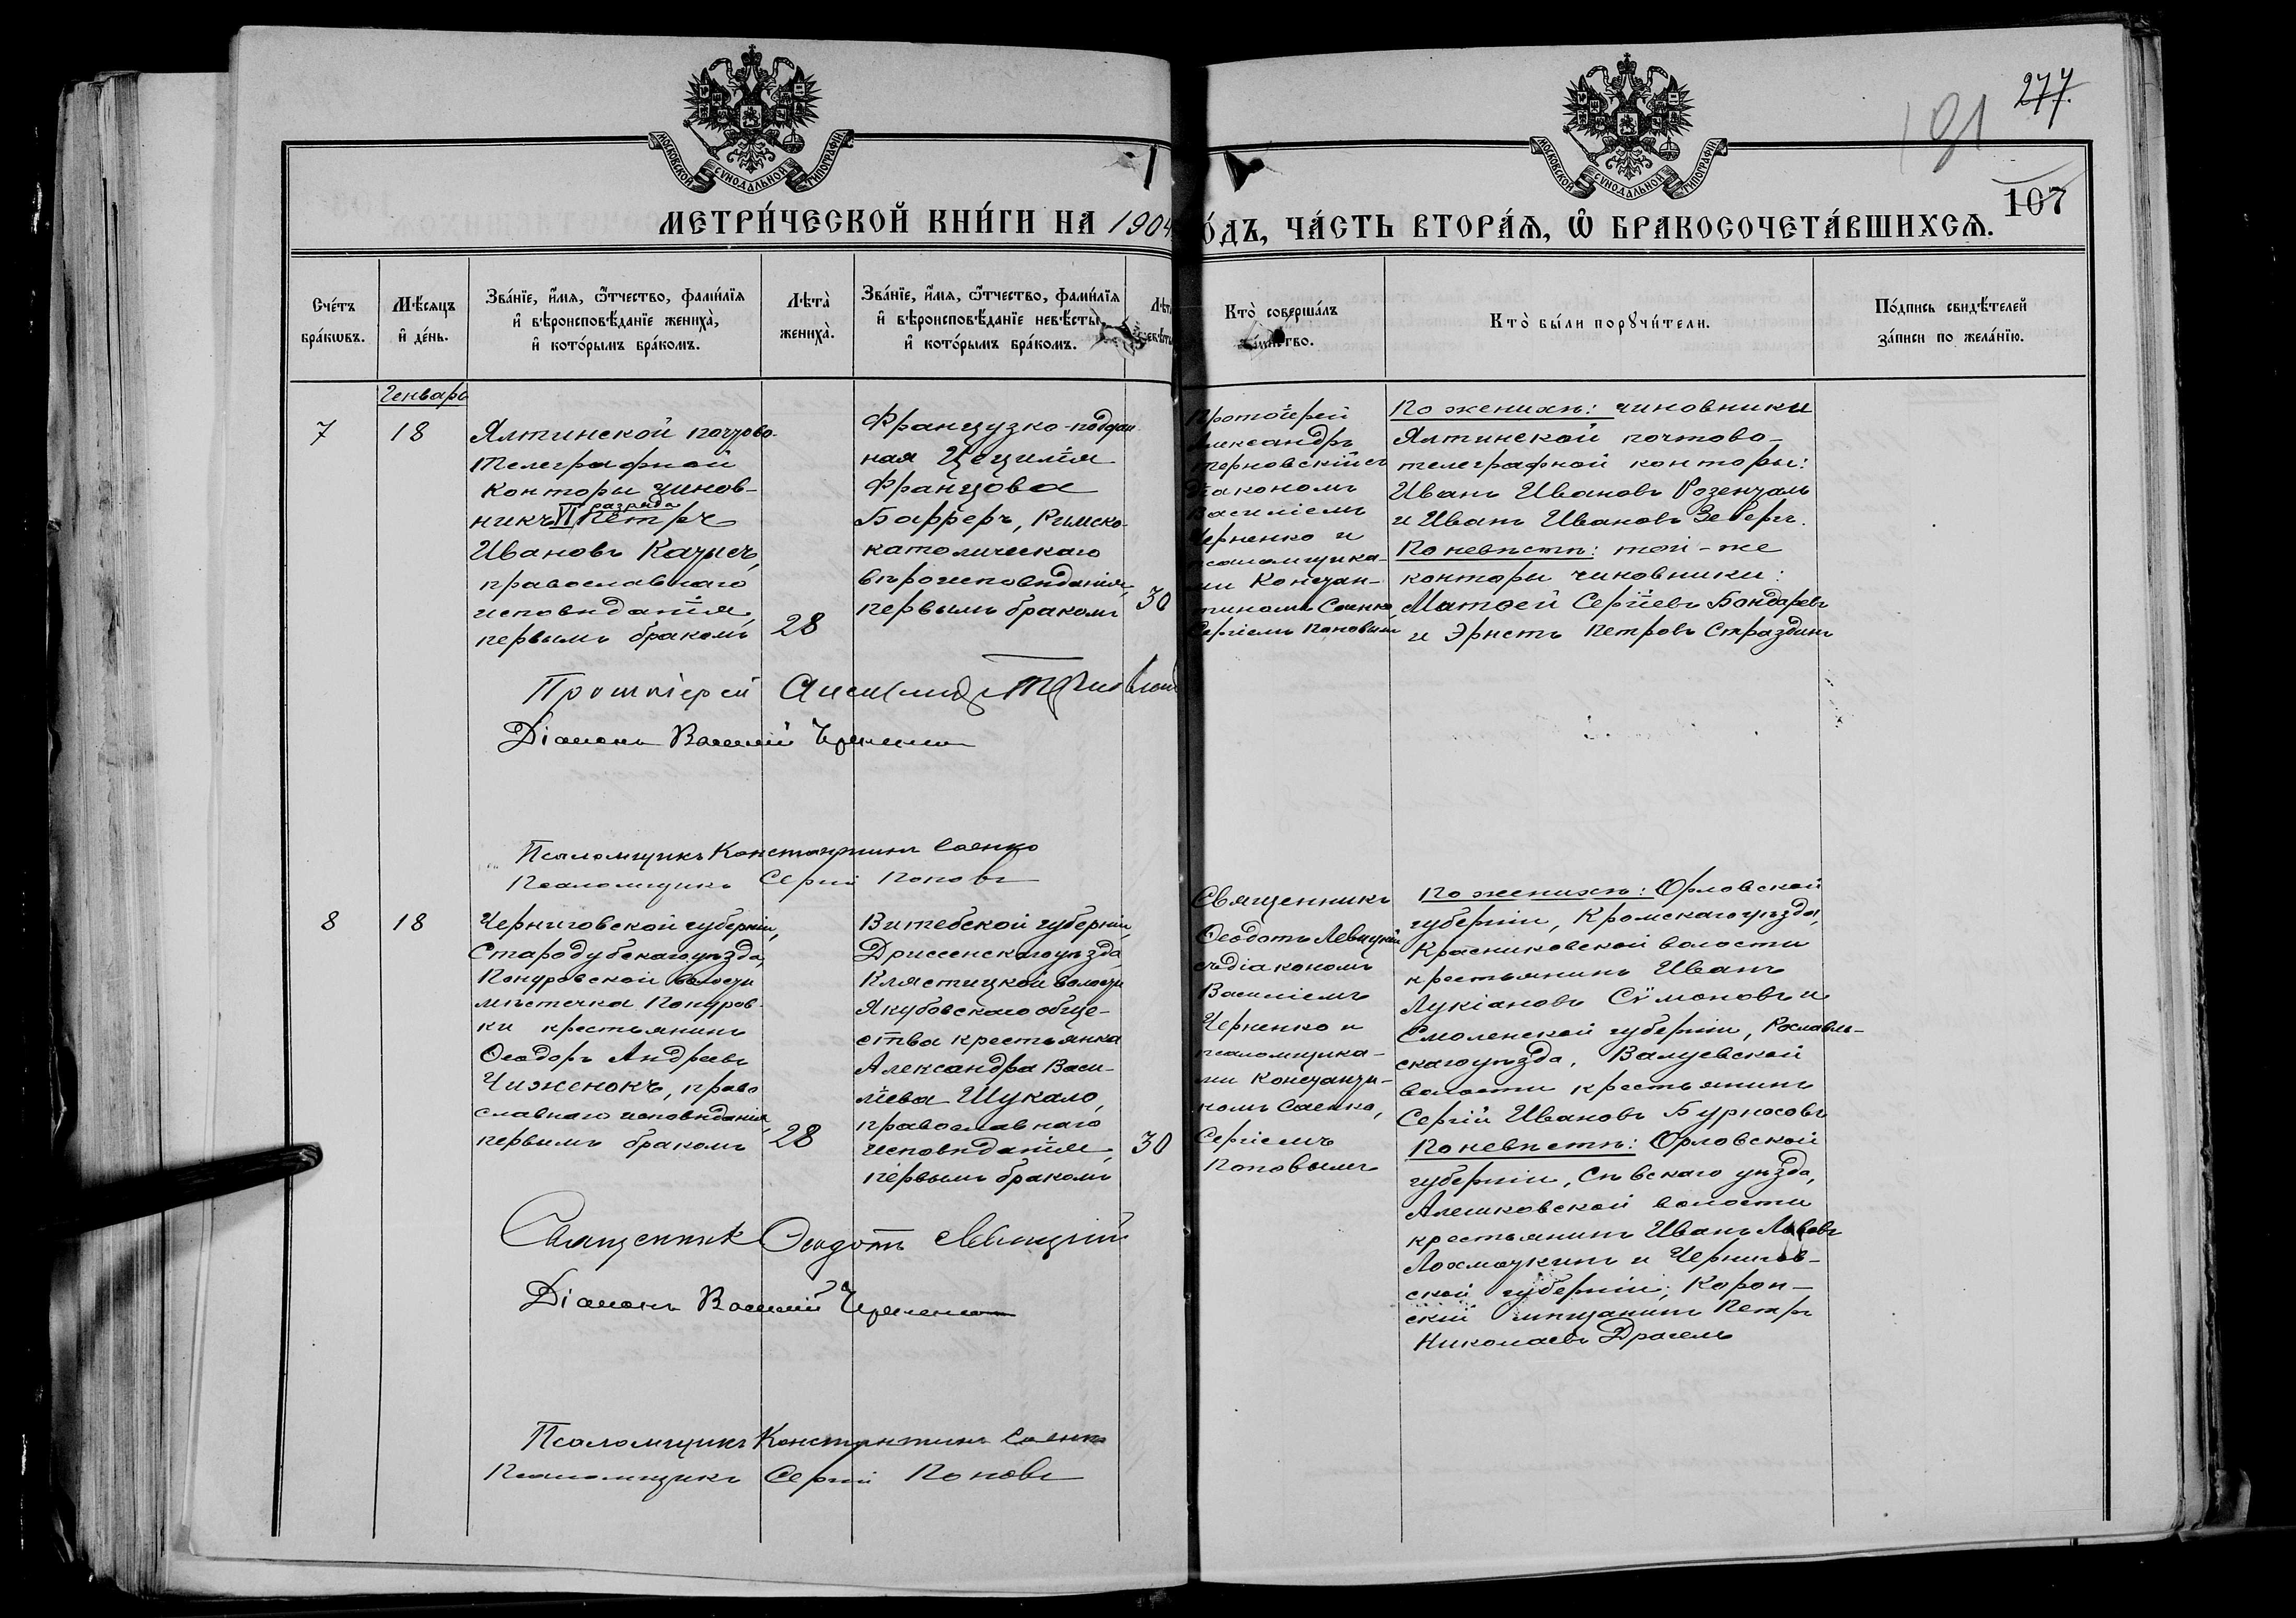 277.
191
107
МОСКОВСКОЙ СУНОДАЛЬНОЙ ТИПОГРАФІИ
МОСКОВСКОЙ СУНОДАЛЬНОЙ ТИПОГРАФІИ
МЕТРИ́ЧЕСКОЙ КНИ́ГИ НА 1904
О́ДЪ, ЧА́СТЬ ВТОРА́Ѧ, Ѽ БРАКОСОЧЕТА́ВШИХСѦ.
Сче́тъ
бра́кѡвъ.
Мѣ́сяцъ
и҆ де́нь.
Зва́нїе, и҆́мя, ѻ҆́тчество, фами́лїя
и҆ вѣроисповѣ́данїе жениха̀,
и҆ кото́рымъ бра́комъ.
Лѣта̀
жениха̀.
Зва́нїе, и҆́мя, ѻ҆́тчество, фами́лїя
и҆ вѣроисповѣ́данїе невѣ́сты
и҆ кото́рымъ бра́комъ.
Кто̀ соверша́лъ
Кто̀ бы́ли порꙋчи́тели.
По́дпись свидѣ́телей
за́писи по жела́нїю.
Генварь
7
18
Ялтинской почтово-
телеграфной
конторы чинов-
разряда
никъ VI Петръ
Ивановъ Качусъ,
православнаго
исповѣданія,
первымъ бракомъ
28
Французко-поддан-
ная Цецилія
Францова
Барреръ, Римско-
католическаго
вѣроисповѣданія,
первымъ бракомъ
30
Протоіерей
Александръ
Терновскій съ
діакономъ
Василіемъ
Черненко и
псаломщика-
ми Констан-
тиномъ Саенко,
Сергіемъ Поповымъ
По женихѣ: чиновники
Ялтинской почтово-
телеграфной конторы:
Иванъ Ивановъ Розенталь
и Иванъ Ивановъ Зебергъ.
По невѣстѣ: той-же
конторы чиновники:
Матѳей Сергіевъ Бондаревъ
и Эрнстъ Петровъ Страздинъ
Протоіерей Александръ Терновскій
Діаконъ Василій Черненко
Псаломщикъ Константинъ Саенко
Псаломщикъ Сергій Поповъ
8
18
Черниговской губерніи,
Стародубскаго уѣзда,
Понуровской волости
мѣстечка Понуров-
ки крестьянинъ
Ѳеодоръ Андреевъ
Чиженокъ, право-
славнаго исповѣданія,
первымъ бракомъ
28
Витебской губерніи,
Дриссенскаго уѣзда,
Клястицкой волости
Якубовскаго обще-
ства крестьянка
Александра Васи-
ліева Шукало,
православнаго
исповѣданія,
первымъ бракомъ
30
Священникъ
Ѳеодотъ Левицкій
съ діакономъ
Василіемъ
Черненко и
псаломщика-
ми Константи-
номъ Саенко,
Сергіемъ
Поповымъ
По женихѣ: Орловской
губерніи, Кромскаго уѣзда,
Красниковской волости
крестьянинъ Иванъ
Лукіановъ Сѵмоновъ и
Смоленской губерніи, Рославль-
скаго уѣзда, Валуевской
волости крестьянинъ
Сергій Ивановъ Бурносовъ
По невѣстѣ: Орловской
губерніи, Сѣвскаго уѣзда,
Алешковской волости
крестьянинъ Иванъ Львовъ
Лохмачкинъ и Чернигов-
ской губерніи, Короп-
скій мѣщанинъ Петръ
Николаевъ Драгель
Священникъ Ѳеодотъ Левицкій
Діаконъ Василій Черненко
Псаломщикъ Константинъ Саенко
Псаломщикъ Сергій Поповъ